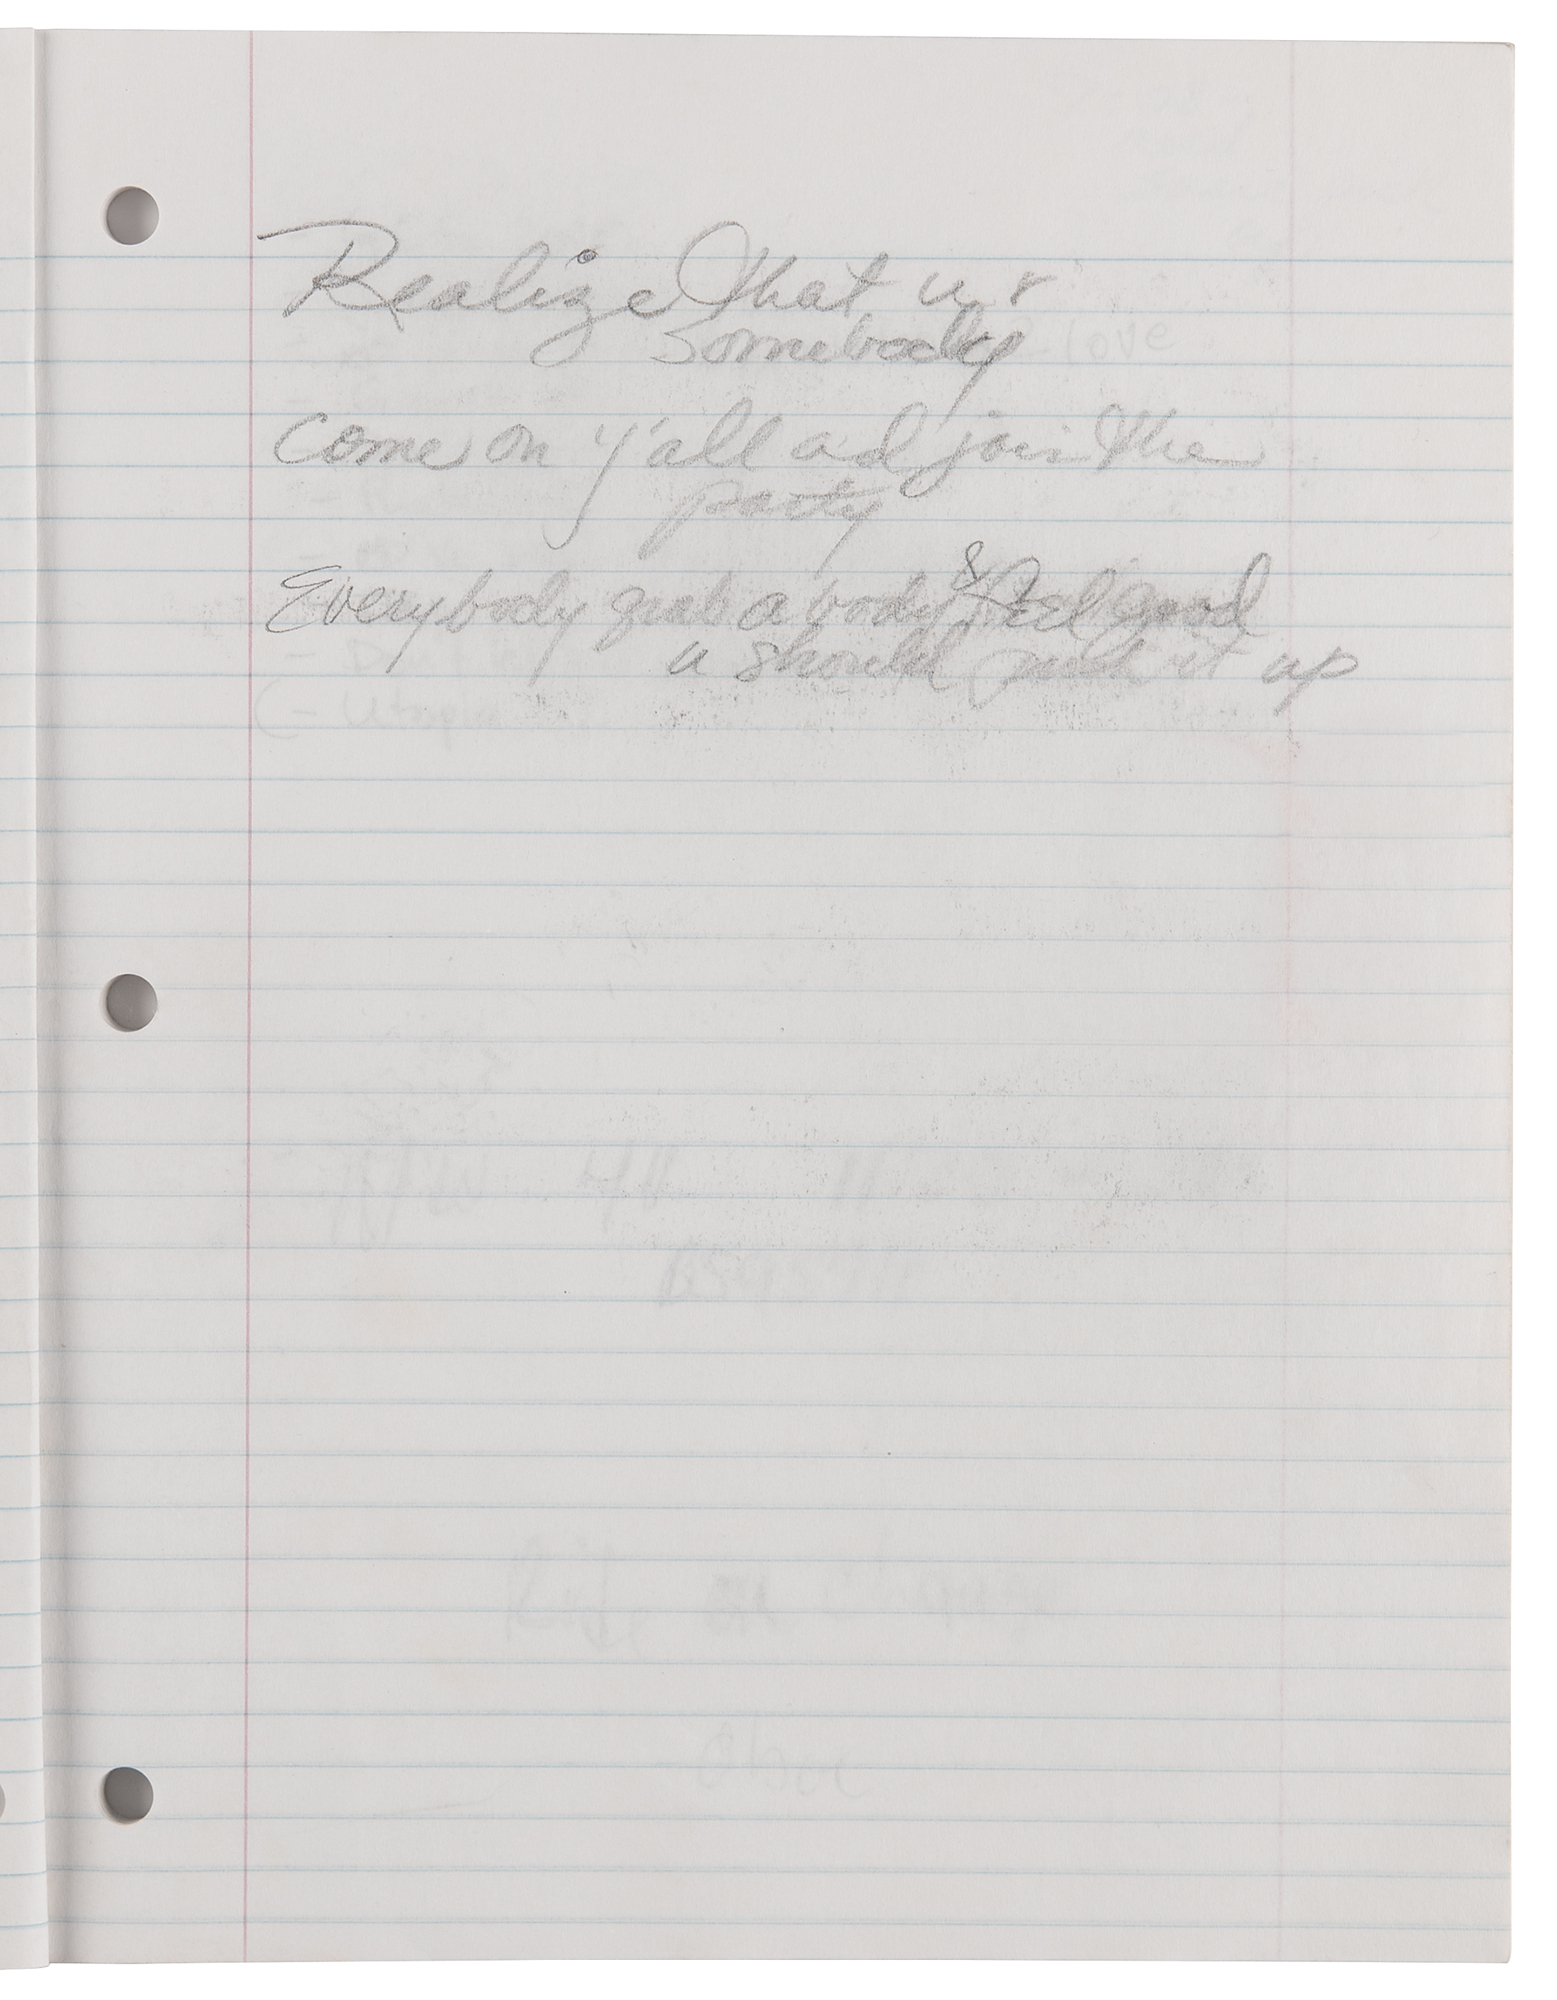 Realize that u r
somebody
Come on y'all ad join the
party
Everybody grab a body & Feel good
u should pick it up
love